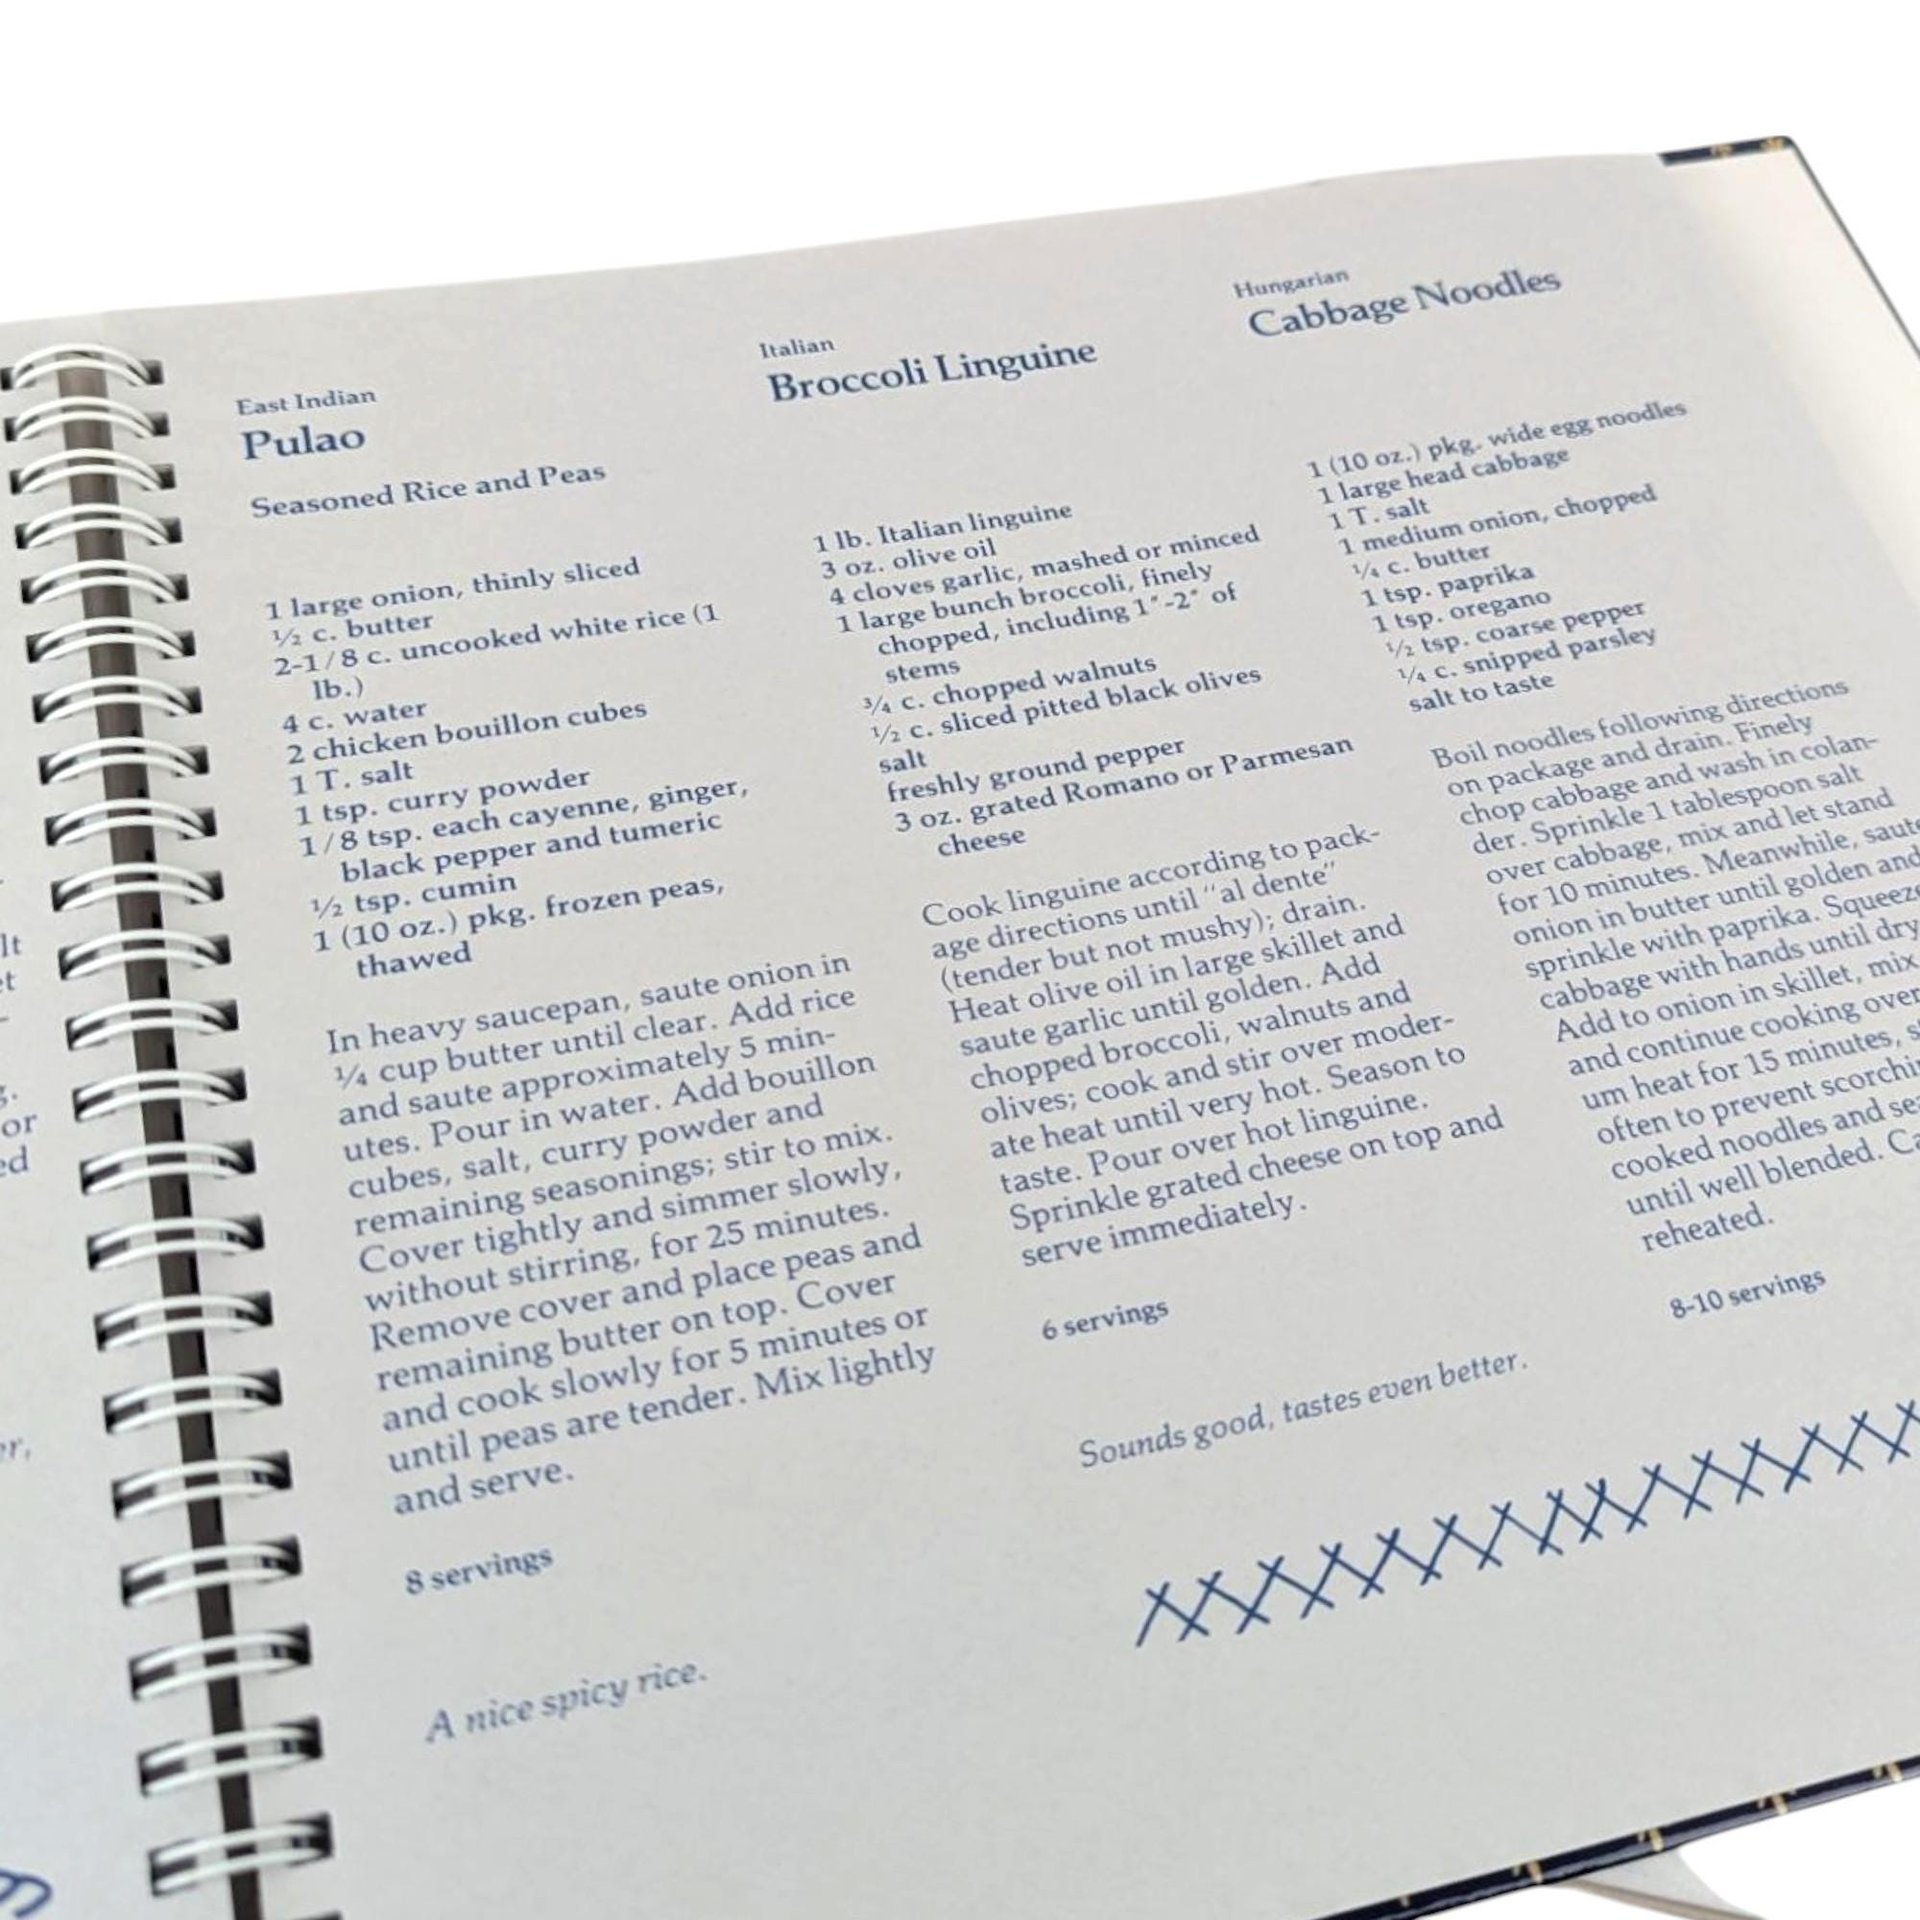 lt
et
g.
or
ed
er,
East Indian
Pulao
Seasoned Rice and Peas
1 large onion, thinly sliced
½ c. butter
2-1/8 c. uncooked white rice (1
lb.)
4 c. water
2 chicken bouillon cubes
1 T. salt
1 tsp. curry powder
1/8 tsp. each cayenne, ginger,
black pepper and tumeric
½ tsp. cumin
1 (10 oz.) pkg. frozen peas,
thawed
In heavy saucepan, saute onion in
¼ cup butter until clear. Add rice
and saute approximately 5 min-
utes. Pour in water. Add bouillon
cubes, salt, curry powder and
remaining seasonings; stir to mix.
Cover tightly and simmer slowly,
without stirring, for 25 minutes.
Remove cover and place peas and
remaining butter on top. Cover
and cook slowly for 5 minutes or
until peas are tender. Mix lightly
and serve.
8 servings
A nice spicy rice.
Italian
Broccoli Linguine
1 lb. Italian linguine
3 oz. olive oil
4 cloves garlic, mashed or minced
1 large bunch broccoli, finely
chopped, including 1"-2" of
stems
¾ c. chopped walnuts
½ c. sliced pitted black olives
salt
freshly ground pepper
3 oz. grated Romano or Parmesan
cheese
Cook linguine according to pack-
age directions until "al dente"
(tender but not mushy); drain.
Heat olive oil in large skillet and
saute garlic until golden. Add
chopped broccoli, walnuts and
olives; cook and stir over moder-
ate heat until very hot. Season to
taste. Pour over hot linguine.
Sprinkle grated cheese on top and
serve immediately.
6 servings
Sounds good, tastes even better.
Hungarian
Cabbage Noodles
1 (10 oz.) pkg. wide egg noodles
1 large head cabbage
1 T. salt
1 medium onion, chopped
¼ c. butter
1 tsp. paprika
1 tsp. oregano
½ tsp. coarse pepper
¼ c. snipped parsley
salt to taste
Boil noodles following directions
on package and drain. Finely
chop cabbage and wash in colan-
der. Sprinkle 1 tablespoon salt
over cabbage, mix and let stand
for 10 minutes. Meanwhile, saute
onion in butter until golden and
sprinkle with paprika. Squeeze
cabbage with hands until dry
Add to onion in skillet, mix
and continue cooking over
um heat for 15 minutes, s
often to prevent scorchi
cooked noodles and se
until well blended. Ca
reheated.
8-10 servings